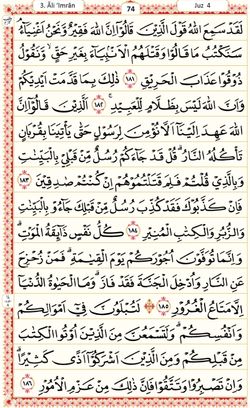 3. Âli 'Imrân 74 Juz 4
لَقَدْ سَمِعَ اللهُ قَوْلَ الَّذِينَ قَالُوٓا اِنَّ اللهَ فَقِيرٌ وَّنَحْنُ اَغْنِيَآءُ ۘ
سَنَكْتُبُ مَا قَالُوْا وَقَتْلَهُمُ الْاَنْۢبِيَآءَ بِغَيْرِ حَقٍّ ۙ وَّنَقُوْلُ
ذُوْقُوْا عَذَابَ الْحَرِيْقِ ﴿١٨١﴾ ذٰلِكَ بِمَا قَدَّمَتْ اَيْدِيْكُمْ
وَاَنَّ اللهَ لَيْسَ بِظَلَّامٍ لِّلْعَبِيْدِ ﴿١٨٢﴾ اَلَّذِيْنَ قَالُوْٓا اِنَّ
اللهَ عَهِدَ اِلَيْنَآ اَلَّا نُؤْمِنَ لِرَسُوْلٍ حَتّٰى يَاْتِيَنَا بِقُرْبَانٍ
تَاْكُلُهُ النَّارُ ۗ قُلْ قَدْ جَآءَكُمْ رُسُلٌ مِّنْ قَبْلِيْ بِالْبَيِّنٰتِ
وَبِالَّذِيْ قُلْتُمْ فَلِمَ قَتَلْتُمُوْهُمْ اِنْ كُنْتُمْ صٰدِقِيْنَ ﴿١٨٣﴾
فَاِنْ كَذَّبُوْكَ فَقَدْ كُذِّبَ رُسُلٌ مِّنْ قَبْلِكَ جَآءُوْ بِالْبَيِّنٰتِ
وَالزُّبُرِ وَالْكِتٰبِ الْمُنِيْرِ ﴿١٨٤﴾ كُلُّ نَفْسٍ ذَآئِقَةُ الْمَوْتِ ۗ
وَاِنَّمَا تُوَفَّوْنَ اُجُوْرَكُمْ يَوْمَ الْقِيٰمَةِ ۗ فَمَنْ زُحْزِحَ
عَنِ النَّارِ وَاُدْخِلَ الْجَنَّةَ فَقَدْ فَازَ ۗ وَمَا الْحَيٰوةُ الدُّنْيَآ
اِلَّا مَتَاعُ الْغُرُوْرِ ﴿١٨٥﴾ لَتُبْلَوُنَّ فِيْٓ اَمْوَالِكُمْ
وَاَنْفُسِكُمْ ۗ وَلَتَسْمَعُنَّ مِنَ الَّذِيْنَ اُوْتُوا الْكِتٰبَ
مِنْ قَبْلِكُمْ وَمِنَ الَّذِيْنَ اَشْرَكُوْٓا اَذًى كَثِيْرًا ۗ
وَاِنْ تَصْبِرُوْا وَتَتَّقُوْا فَاِنَّ ذٰلِكَ مِنْ عَزْمِ الْاُمُوْرِ ﴿١٨٦﴾